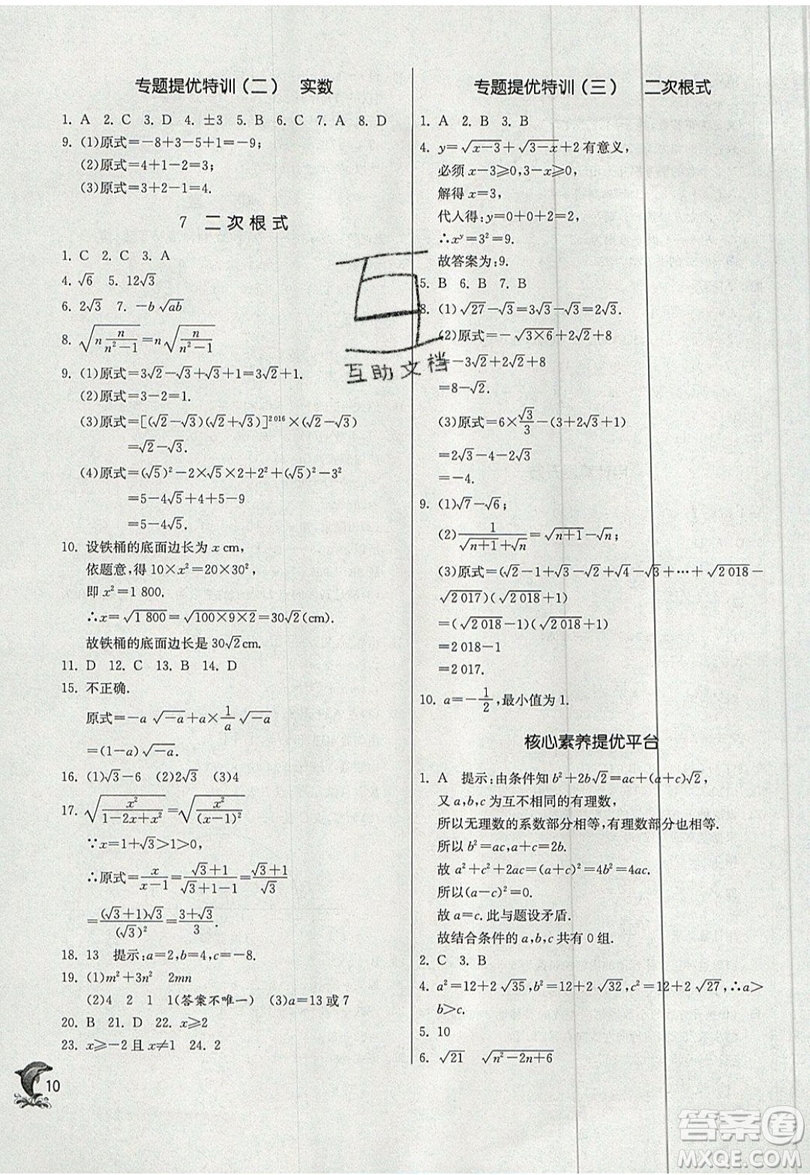 专题提优特训(二)　实数
1. A　2. C　3. D　4. ±3　5. B　6. C　7. A　8. D
9. (1)原式=-8+3-5+1=-9;
(2)原式=4+1-2=3;
(3)原式=3+2-1=4.
7　二次根式
1. C　2. C　3. A
4. √6　5. 12√3
6. 2√3　7. -b√ab
8. √(n n/(n²-1))=n√(n/(n²-1))
9. (1)原式=3√2-√3+√3=3√2.
(2)原式=4+√6.
(3)原式=[(√2-√3)(√2+√3)]²⁰¹⁶×(√2-√3)
=√2-√3.
(4)原式=(√5)²-2×√5×2+(√5)²-3²
=5-4√5+5-9
=5-4√5.
10. 设铁桶的底面边长为x cm,
依题意,得10×x²=20×30²,
即x²=1 800.
∴x=√1 800=√(100×9×2)=30√2(cm).
故铁桶的底面边长是30√2 cm.
11. D　12. C　13. B　14. D
15. 不正确.
原式=-a√-a+a×1/a√-a
=(1-a)√-a.
16. (1)√3-6　(2)2√3　(3)4
17. √(x²/(1-2x+x²))=√(x²/(x-1)²)
∵x=1+√3>1>0,
∴原式=x/(x-1)=(√3+1)/(√3+1-1)=(√3+1)/√3
=(√3+1)√3/(√3)²=(3+√3)/3
18. 13　提示:a=2,b=4,c=-8.
19. (1)m²+3n²　2mn
(2)4　2　1　1(答案不唯一)　(3)a=13或7
20. B　21. D　22. x≥2
23. x≥-2且x≠1　24. 2
10
专题提优特训(三)　二次根式
1. A　2. B　3. B
4. y=√(x-3)+√(3-x)+2有意义,
必须x-3≥0,3-x≥0,
解得x=3,
代人得:y=0+0+2=2,
∴xʸ=3²=9.
故答案为:9.
5. B　6. B　7. B
8. (1)√27-√3=3√3-√3=2√3.
(2)原式=-√(3×6)+2√2+8
=-3√2+2√2+8
=8-√2.
(3)原式=6×√3/3-(3+2√3+1)
=2√3-4-2√3
=-4.
9. (1)√7-√6;
(2)1/(√(n+1)+√n)=√(n+1)-√n;
(3)原式=(√2-1+√3-√2+√4-√3+…+√2 018-
√2 017)(√2 018+1)
=(√2 018-1)(√2 018+1)
=2 018-1
=2 017.
10. a=-1/2,最小值为1.
核心素养提优平台
1. A　提示:由条件知b²+2b√2=ac+(a+c)√2,
又a,b,c为互不相同的有理数,
所以无理数的系数部分相等,有理数部分也相等.
所以b²=ac,a+c=2b.
故a²+c²+2ac=4b²=4ac.
所以(a-c)²=0.
故a=c.此与题设矛盾.
故故结合条件的共有0组.
2. C　3. B
4. a²=12+2√35,b²=12+2√32,c²=12+2√27,∴a>
b>c.
5. 10
6. √21　√(n²-2n+6)
互助文档
答案圈
MXQE.COM